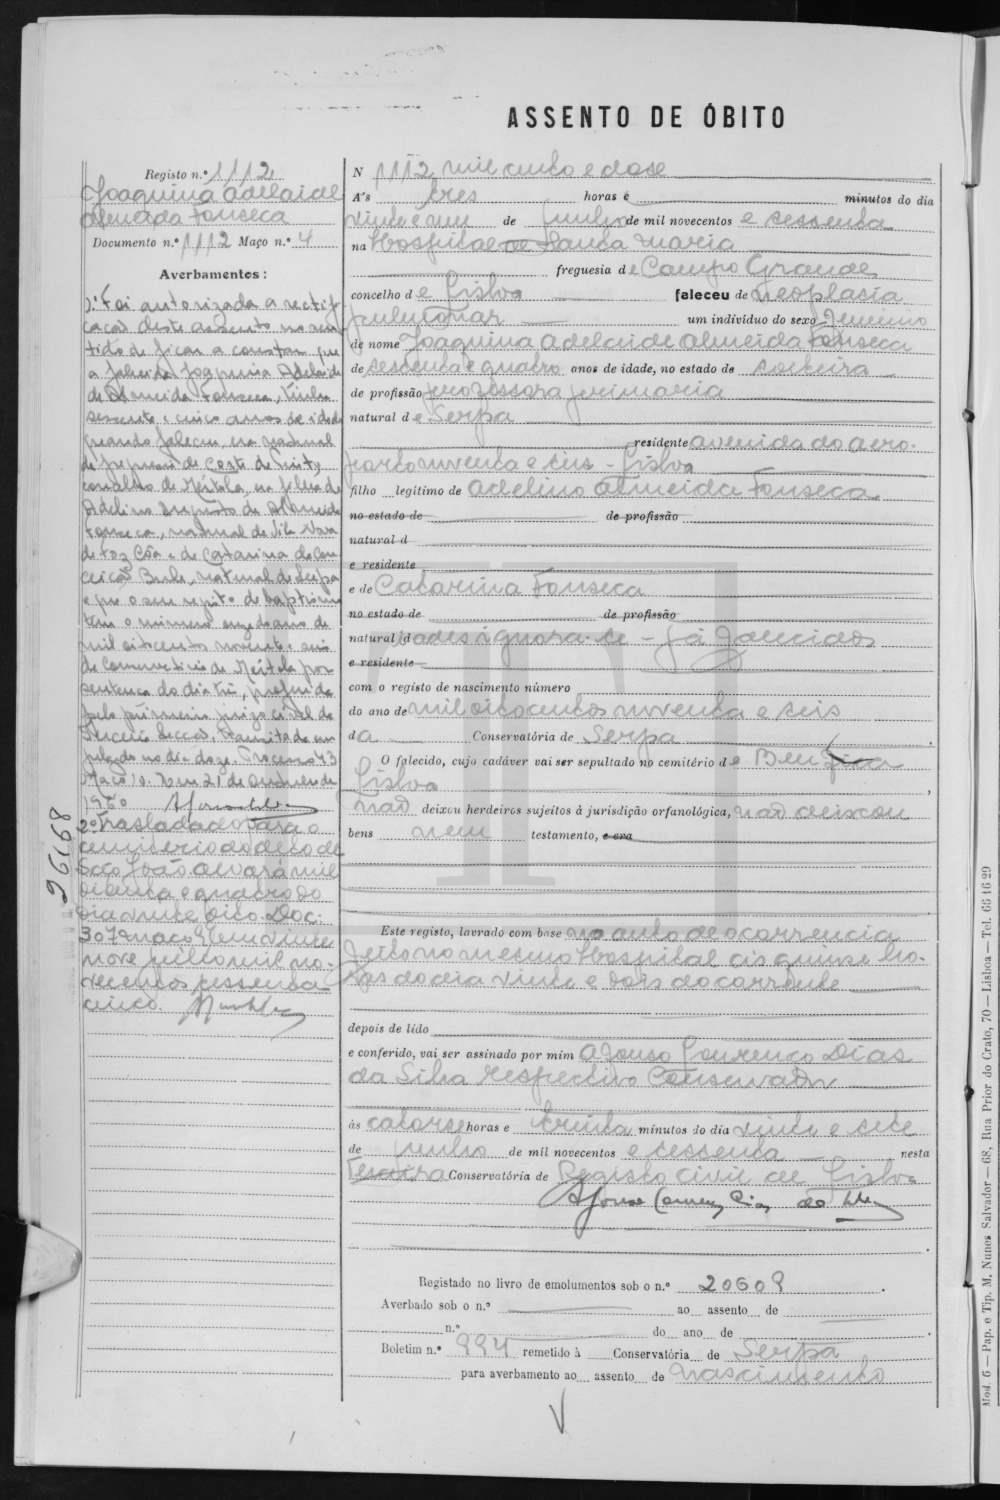 ASSENTO DE ÓBITO
Registo n.º 1112
Joaquina Adelaide
Almeida Fonseca
Documento n.º 1112 Maço n.º 4
Averbamentos:
1.º Foi autorizada a rectifi
cação deste assento no sen
tido de ficar a constar que
a falecida Joaquina Adelaide
de Almeida Fonseca, tinha
sessenta e cinco anos de idade
quando faleceu, era natural
da freguesia de Corte do Pinto,
concelho de Mértola, era filha de
Adelino Augusto de Almeida
Fonseca, natural de Vila Nova
de Foz Côa e de Catarina da Con
ceição, natural de Serpa
e que o seu registo de baptismo
tem o número onze do ano de
mil oitocentos noventa e seis
da Conservatória de Mértola por
sentença do dia três, proferida
pelo primeiro juizo civel da
terceira secção, transitada em
julgado no dia doze. Processo 43
Maço 10. Em 21 de Outubro de
1960
2.º Trasladado para o
cemiterio do Alto de
São João alvará mil
oitenta e quatro do
dia vinte oito. Doc.
307 maço 9 Em vinte
nove julho mil no-
vecentos sessenta
cinco.
96168
N 1112 mil cento e doze
A's tres horas e minutos do dia
vinte e um de junho de mil novecentos e sessenta
na Hospital de Santa Maria
freguesia de Campo Grande
concelho de Lisboa faleceu de neoplasia
pulmonar um indivíduo do sexo feminino
de nome Joaquina Adelaide Almeida Fonseca
de sessenta e quatro anos de idade, no estado de solteira
de profissão professora primaria
natural de Serpa
residente avenida do aero-
porto noventa e seis - Lisboa
filho legítimo de Adelino Almeida Fonseca
no estado de de profissão
natural d
e residente
e de Catarina Fonseca
no estado de de profissão
natural idades ignora-se - já falecidos
e residente
com o registo de nascimento número
do ano de mil oitocentos noventa e seis
da Conservatória de Serpa
O falecido, cujo cadáver vai ser sepultado no cemitério de Benfica
Lisboa
não deixou herdeiros sujeitos à jurisdição orfanológica, não deixou
bens nem testamento, e era
Este registo, lavrado com base no auto de ocorrencia
feito no mesmo Hospital ás quinze ho-
ras do dia vinte e dois do corrente
depois de lido
e conferido, vai ser assinado por mim Afonso Lourenço Dias
da Silva respectivo Conservador
às catorze horas e trinta minutos do dia vinte e sete
de junho de mil novecentos e sessenta nesta
Terceira Conservatória de Registo Civil de Lisboa
Afonso Lourenço Dias da Silva
Registado no livro de emolumentos sob o n.º 20609
Averbado sob o n.º ao assento de
n.º do ano de
Boletim n.º 994 remetido à Conservatória de Serpa
para averbamento ao assento de nascimento
Mod. 6 — Pap. e Tip. M. Nunes Salvador — 68, Rua Prior do Crato, 70 — Lisboa — Tel. 66 16 29